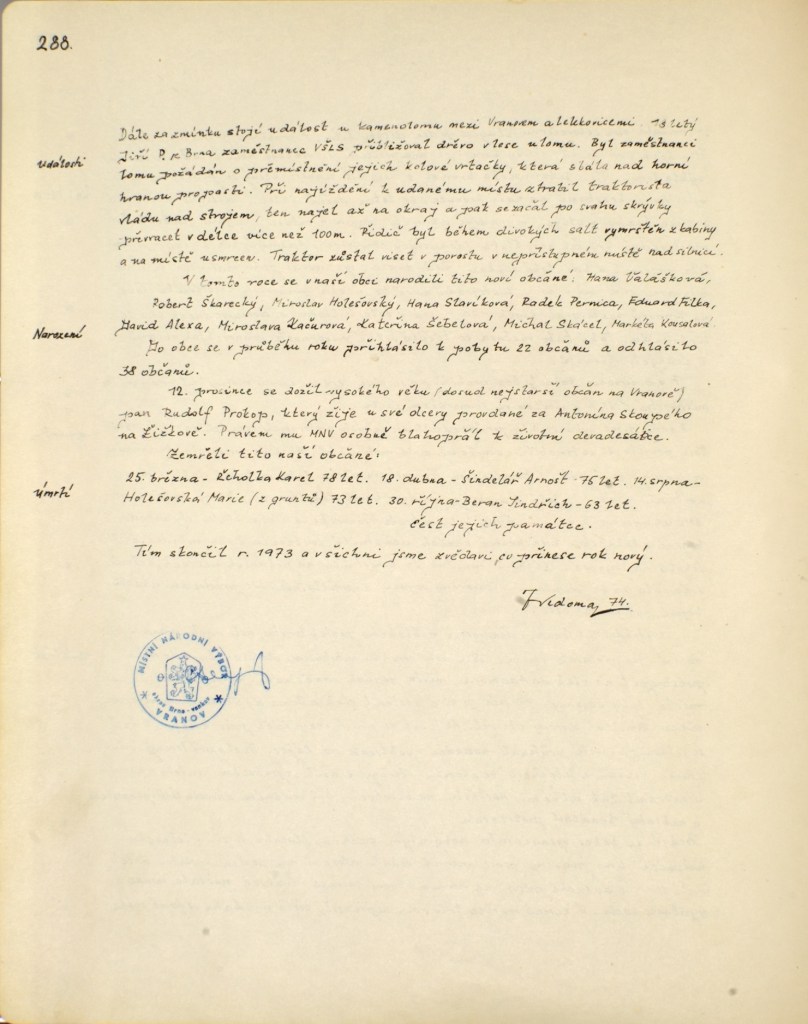 288.
Dále za zmínku stojí událost u kamenolomu mezi Vranovem a Lelekovicemi. 18 letý
Události
Jiří P. z Brna zaměstnanec VŠLS přibližoval dřevo v lese u lomu. Byl zaměstnanci
lomu požádán o přemístnění jejich kolové vrtačky, která stála nad horní
hranou propasti. Při najíždění k udanému místu ztratil traktorista
vládu nad strojem, ten najel až na okraj a pak se začal po svahu skrývky
převracet v délce více než 100m. Řidič byl během divokých salt vymrštěn z kabiny
a na místě usmrcen. Traktor zůstal viset v porostu v nepřístupném místě nad silnicí.
V tomto roce se v naší obci narodili tito noví občané: Hana Valášková,
Robert Škarecký, Miroslav Holešovský, Hana Slavíková, Radek Pernica, Eduard Filka,
Narození
David Alexa, Miroslava Kačurová, Kateřina Šebelová, Michal Skácel, Markéta Kousalová
Do obce se v průběhu roku přihlásilo k pobytu 22 občanů a odhlásilo
38 občanů.
12. prosince se dožil vysokého věku (dosud nejstarší občan na Vranově)
pan Rudolf Prokop, který žije u své dcery provdané za Antonína Skoupého
na Žižlově. Právem mu MNV osobně blahopřál k životní devadesátce.
Zemřeli tito naši občané:
25. března - Žeholka Karel 78 let. 18. dubna - Šindelář Arnošt - 75 let. 14. srpna -
Úmrtí
Holešovská Marie (z gruntů) 73 let. 30. října - Beran Jindřich - 63 let.
Čest jejich památce.
Tím skončil r. 1973 a všichni jsme zvědavi, co přinese rok nový.
Jvedoma, 74.
MÍSTNÍ NÁRODNÍ VÝBOR
okres Brno - venkov
VRANOV